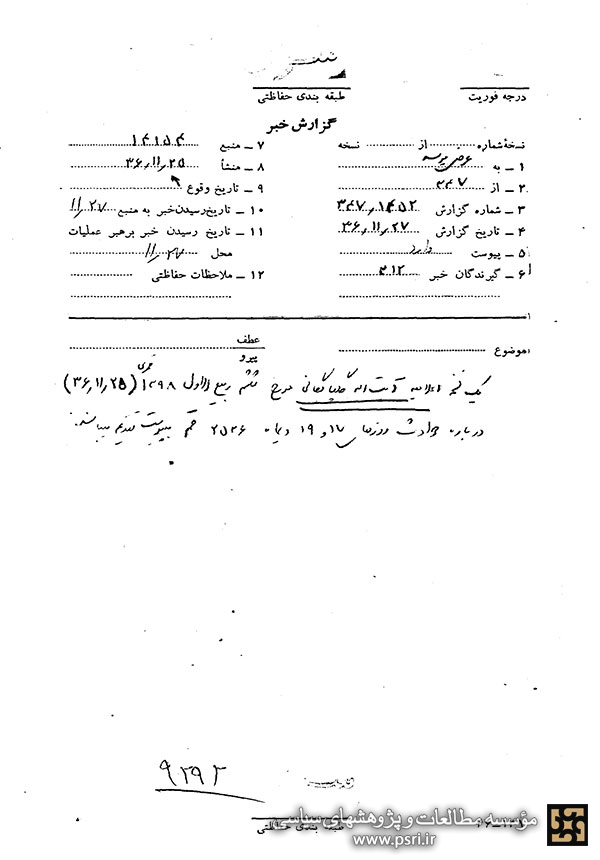 سری
درجه فوریت
طبقه بندی حفاظتی
گزارش خبر
نسخه شماره از نسخه
۱ ـ به
۲ ـ از ۳۴۷
۳ ـ شماره گزارش ۳۴۷٫۱۴۵۲
۴ ـ تاریخ گزارش ۳۶٫۱۱٫۲۷
۵ ـ پیوست دارد
۶ ـ گیرندگان خبر ۳۱۲
۷ ـ منبع ۱۴۱۵۴
۸ ـ منشأ ۳۶٫۱۱٫۲۵
۹ ـ تاریخ وقوع
۱۰ ـ تاریخ رسیدن خبر به منبع ۱۱٫۲۷
۱۱ ـ تاریخ رسیدن خبر برهبر عملیات
محل ۱۱٫۲۷
۱۲ ـ ملاحظات حفاظتی
موضوع:
عطف
پیرو
یک نسخه اعلامیه آیت اله گلپایگانی مورخ ششم ربیع الاول ۱۳۹۸ قمری (۳۶٫۱۱٫۲۵)
درباره حوادث روزهای ۱۷ و ۱۹ دیماه ۲۵۳۶ قم بپیوست تقدیم میباشد.
۹۲۹۲
طبقه بندی حفاظتی
مؤسسه مطالعات و پژوهشهای سیاسی
www.psri.ir